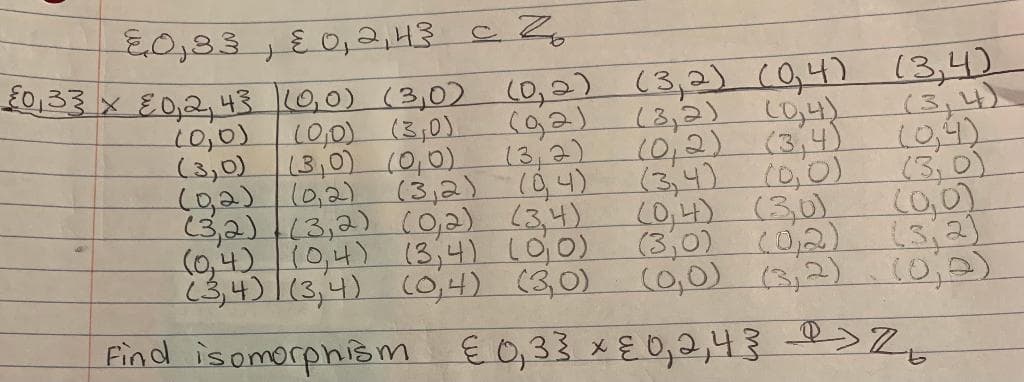 {0,3} , {0,2,4} ⊂ Z₆
{0,3} × {0,2,4} | (0,0) (3,0) (0,2) (3,2) (0,4) (3,4)
(0,0) | (0,0) (3,0) (0,2) (3,2) (0,4) (3,4)
(3,0) | (3,0) (0,0) (3,2) (0,2) (3,4) (0,4)
(0,2) | (0,2) (3,2) (0,4) (3,4) (0,0) (3,0)
(3,2) | (3,2) (0,2) (3,4) (0,4) (3,0) (0,0)
(0,4) | (0,4) (3,4) (0,0) (3,0) (0,2) (3,2)
(3,4) | (3,4) (0,4) (3,0) (0,0) (3,2) (0,2)
Find isomorphism {0,3} × {0,2,4} –Φ→ Z₆